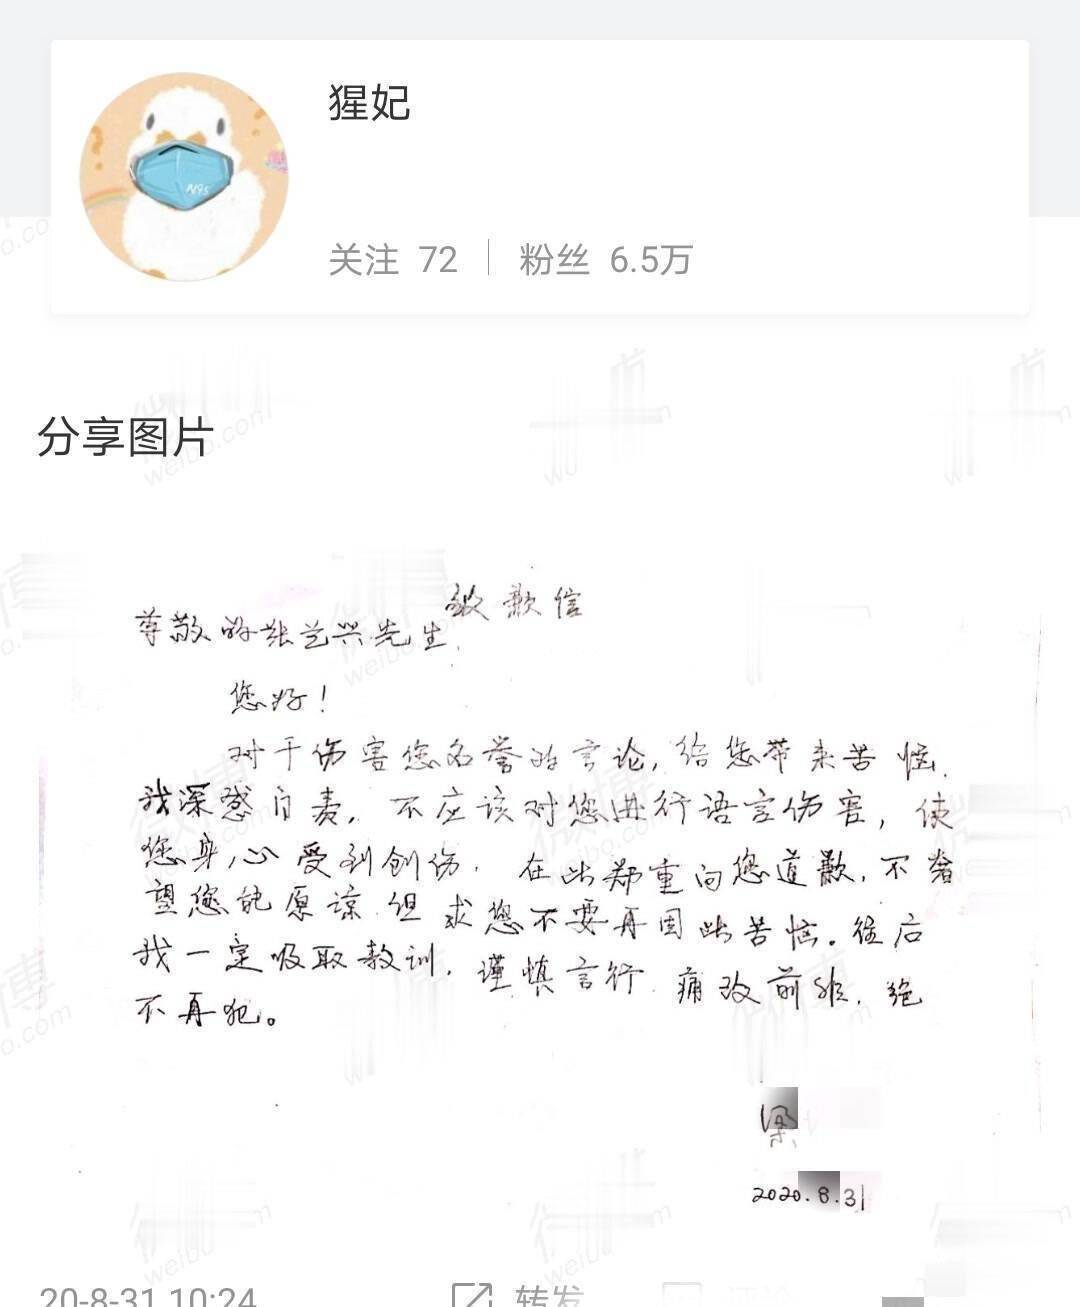 猩妃
N95
关注 72 粉丝 6.5万
分享图片
致歉信
尊敬的张艺兴先生.
您好!
对于伤害您名誉的言论,给您带来苦恼.
我深感自责,不应该对您进行语言伤害,使
您身心受到创伤.在此郑重向您道歉,不奢
望您能原谅.但求您不要再因此苦恼。往后
我一定吸取教训,谨慎言行.痛改前非.绝
不再犯。
梁
2020.8.31
20-8-31 10:24 转发 评论
weibo.com